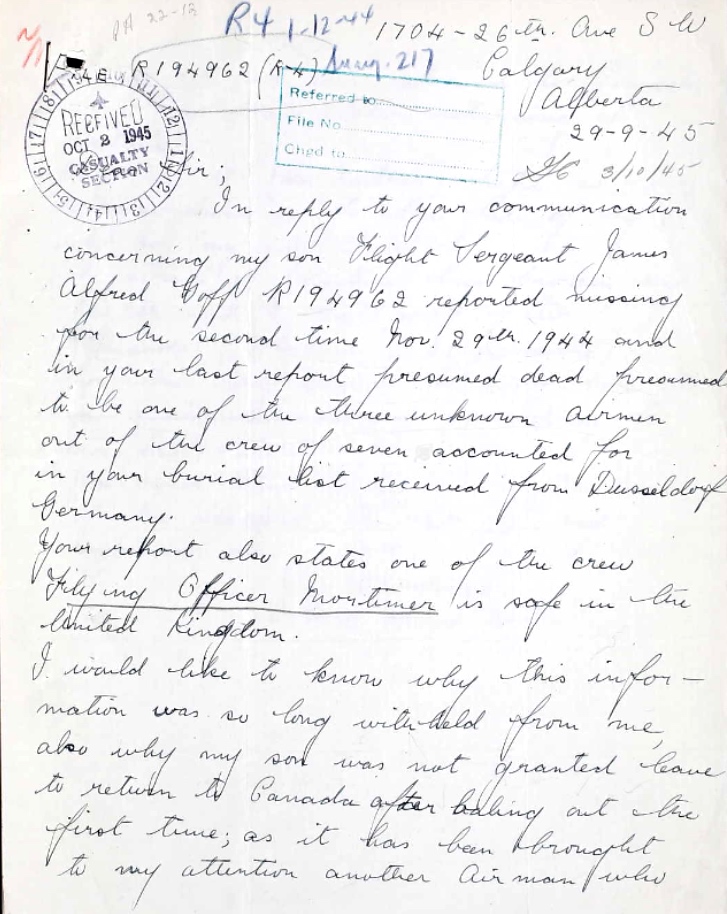 PA 22-13
R4 1-12-44
1704-26th. Ave S W
34E R194962 (R-4) 217
Calgary
Alberta
29-9-45
3/10/45
Referred to
File No
Chgd to
RECEIVED
OCT 2 1945
CASUALTY
SECTION
Dear Sir;
In reply to your communication
concerning my son Flight Sergeant James
Alfred Goff R194962 reported missing
for the second time Nov. 29th. 1944 and
in your last report presumed dead presumed
to be one of the three unknown airmen
out of the crew of seven accounted for
in your burial list received from Dusseldorf
Germany.
Your report also states one of the crew
Flying Officer Mortimer is safe in the
United Kingdom.
I would like to know why this infor-
mation was so long withheld from me,
also why my son was not granted leave
to return to Canada after baling out the
first time; as it has been brought
to my attention another Airman who